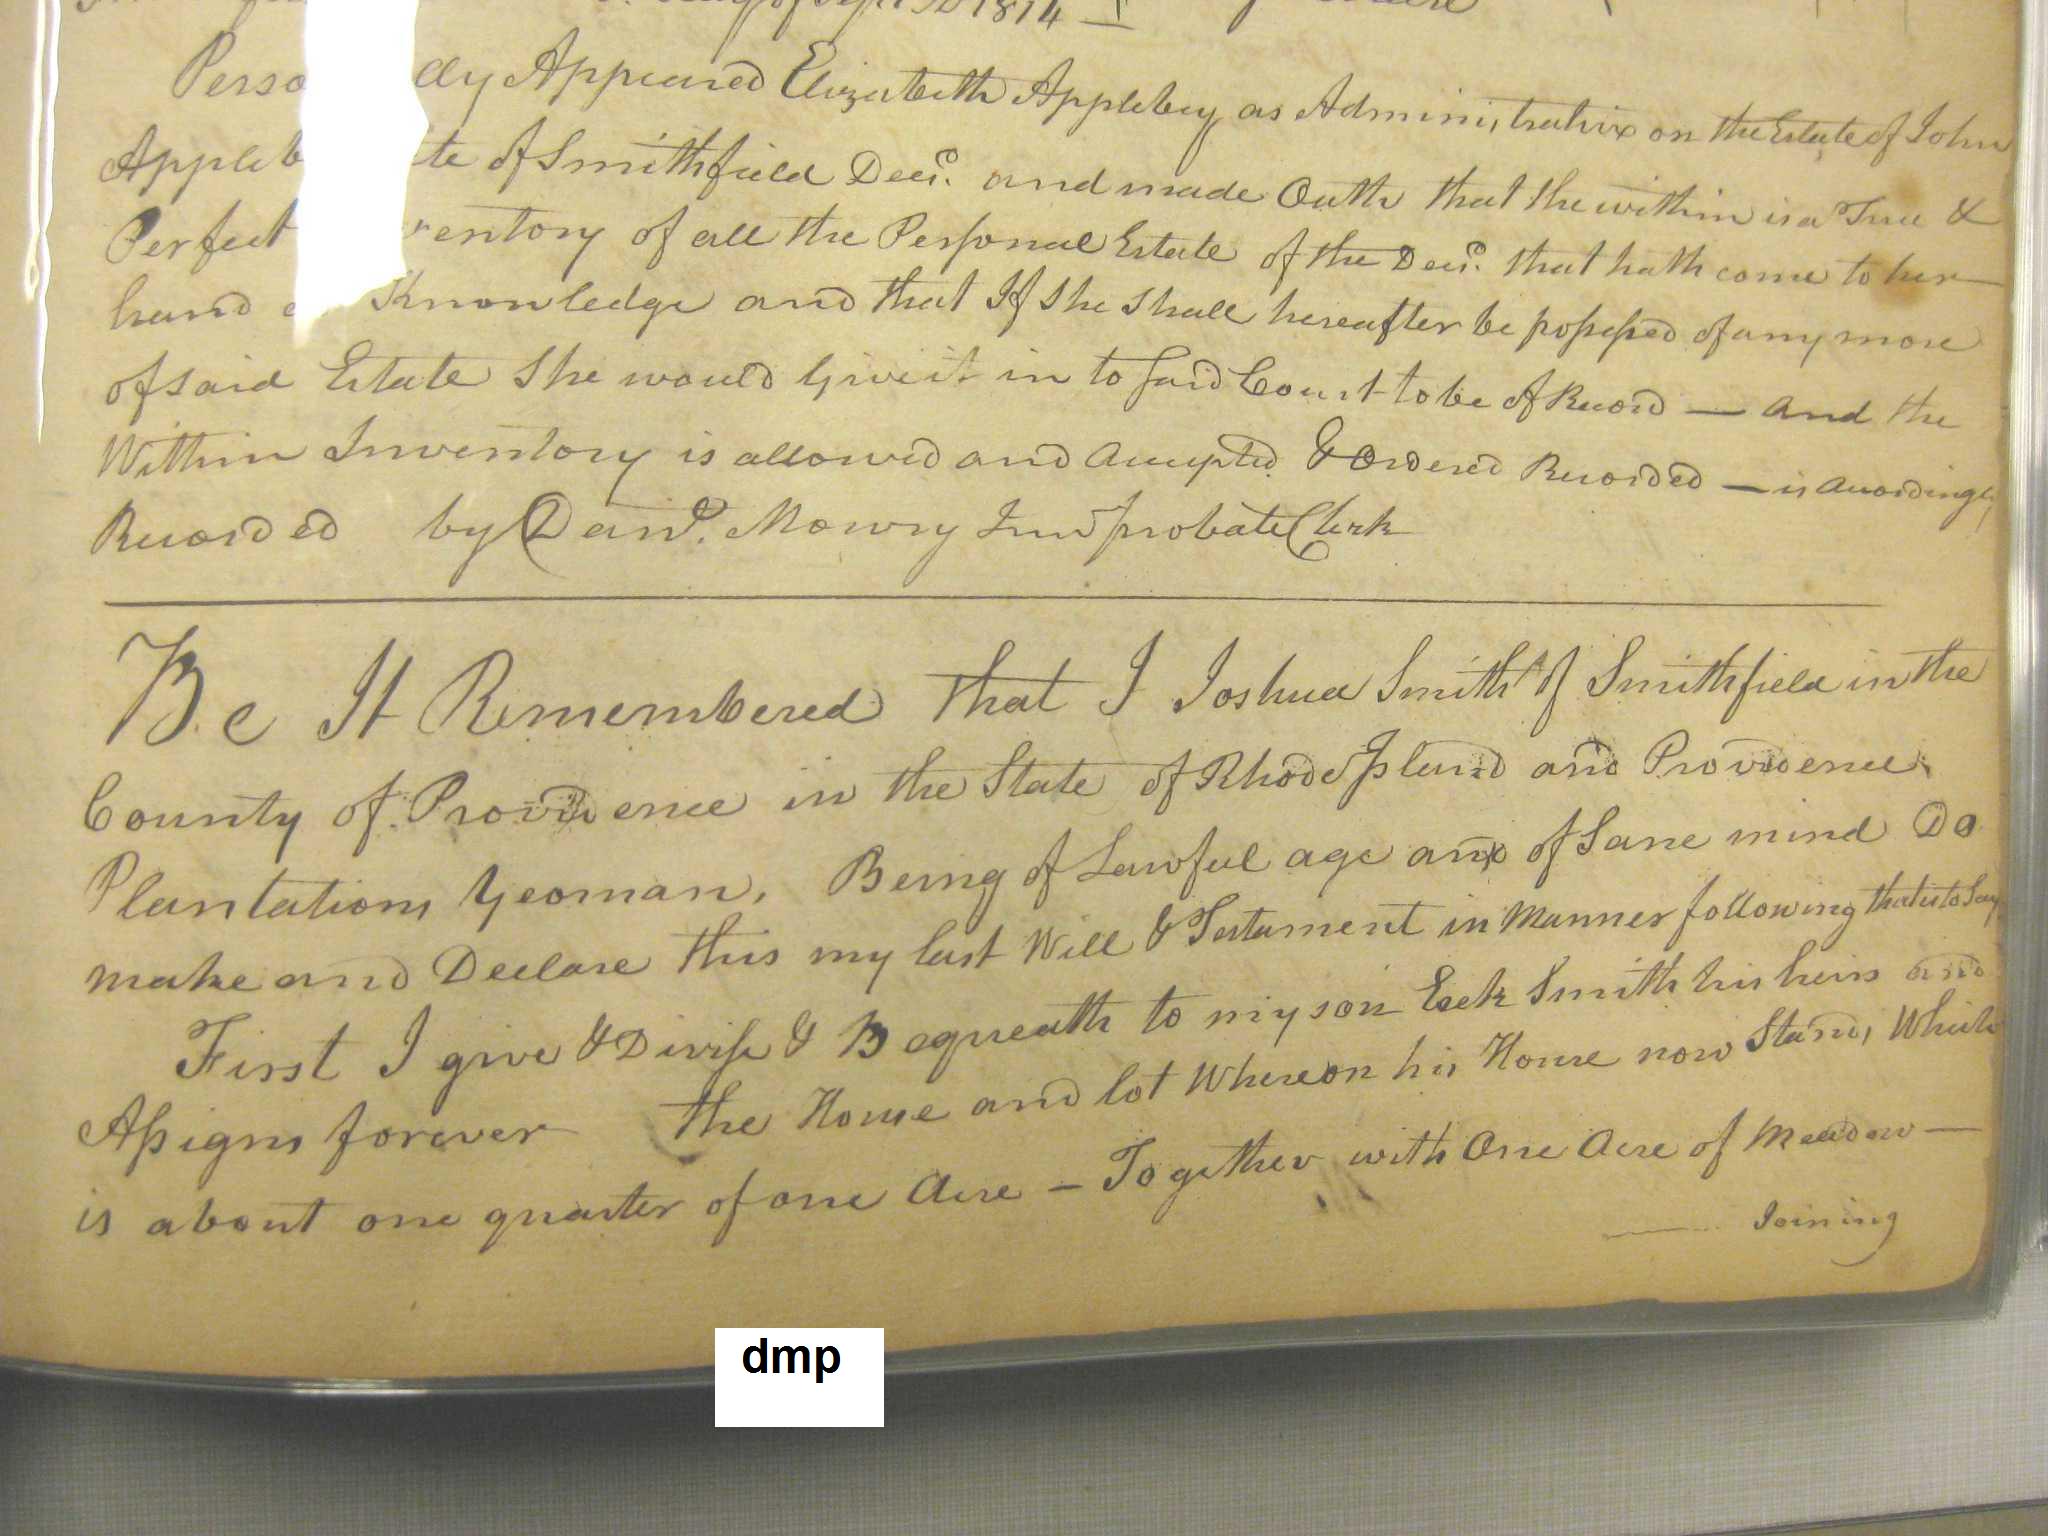 of Sept AD 1814
Perso lly Appeared Elizabeth Appleby as Administratrix on the Estate of John
Appleb te of Smithfield Decd. and made Oath that the within is a True &
Perfect ventory of all the Personal Estate of the Decd. that hath come to her
hand Knowledge and that If She Shall hereafter be possessed of any more
of said Estate She would Give it in to said Court to be of Record — and the
Within Inventory is allowed and Accepted & Ordered Recorded — is accordingly
Recorded by Danl. Mowry Junr probate Clerk
Be It Remembered that I Joshua Smith of Smithfield in the
County of Providence in the State of Rhode Island and Providence
Plantations Yeoman, Being of Lawful age and of Sane mind Do
make and Declare this my last Will & Testament in Manner following that is to Say
First I give & Divise & Bequeath to my son Esek Smith his heirs and
Assigns forever the House and lot Whereon his House now Stands Which
is about one quarter of one Acre — Together with One Acre of Meadow —
Joining
dmp